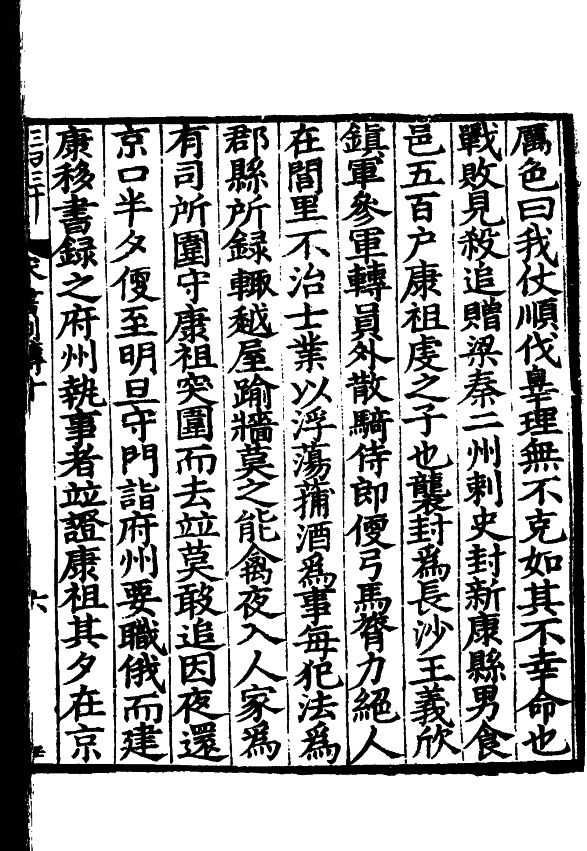 厲色曰我仗順伐辠理無不克如其不幸命也
戰敗見殺追贈梁秦二州刺史封新康縣男食
邑五百户康祖虔之子也襲封爲長沙王義欣
鎮軍參軍轉員外散騎侍郎便弓馬膂力絕人
在閭里不治士業以浮蕩蒱酒爲事每犯法爲
郡縣所録輙越屋踰牆莫之能禽夜入人家爲
有司所圍守康祖突圍而去竝莫敢追因夜還
京口半夕便至明旦守門詣府州要職俄而建
康移書録之府州執事者竝證康祖其夕在京
宋書列傳十
六